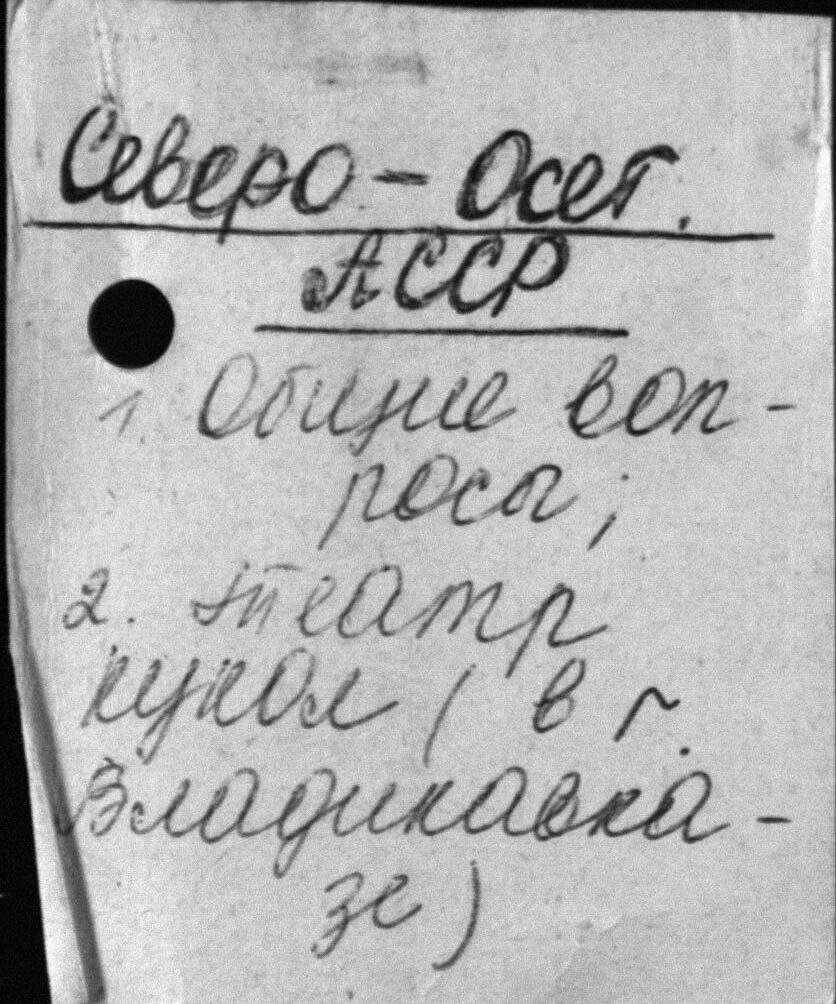 Северо - Осет.
АССР
1. Общие воп-
росы;
2. театр
кукол (в г.
Владикавка-
зе)